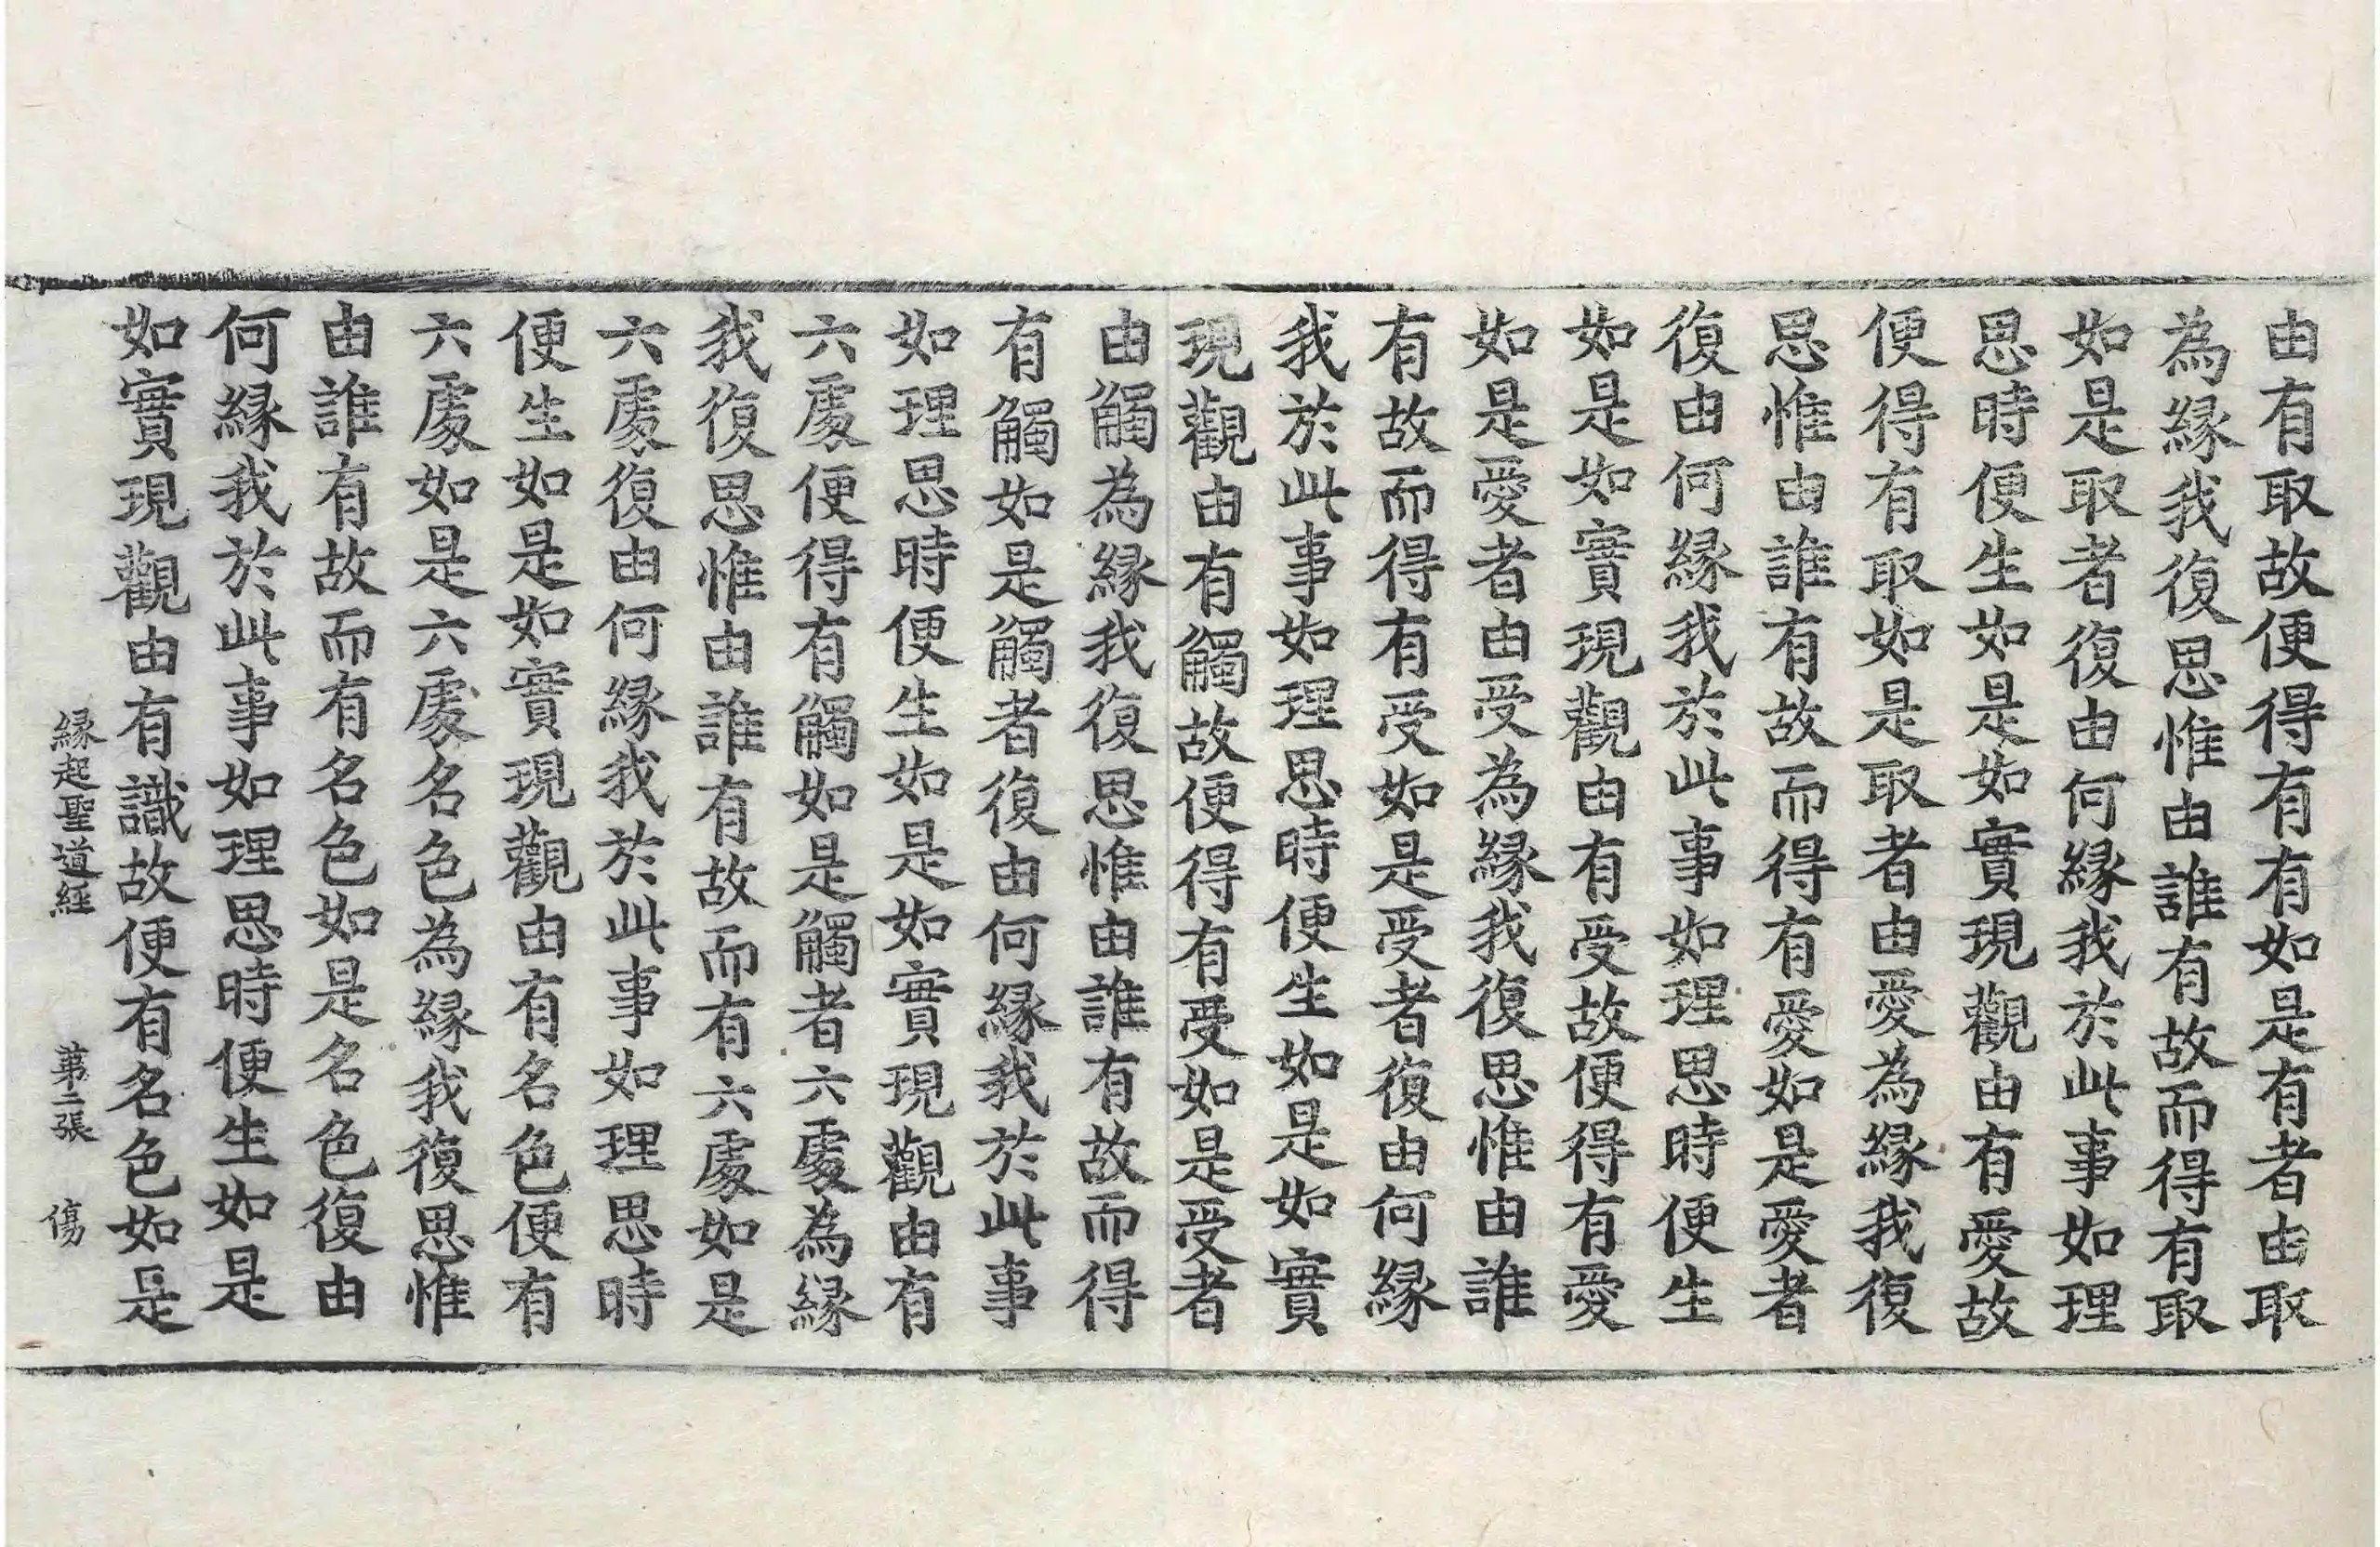 由有取故便得有有如是有者由取
為緣我復思惟由誰有故而得有取
如是取者復由何緣我於此事如理
思時便生如是如實現觀由有愛故
便得有取如是取者由愛為緣我復
思惟由誰有故而得有愛如是愛者
復由何緣我於此事如理思時便生
如是如實現觀由有受故便得有愛
如是愛者由受為緣我復思惟由誰
有故而得有受如是受者復由何緣
我於此事如理思時便生如是如實
現觀由有觸故便得有受如是受者
由觸為緣我復思惟由誰有故而得
有觸如是觸者復由何緣我於此事
如理思時便生如是如實現觀由有
六處便得有觸如是觸者六處為緣
我復思惟由誰有故而有六處如是
六處復由何緣我於此事如理思時
便生如是如實現觀由有名色便有
六處如是六處名色為緣我復思惟
由誰有故而有名色如是名色復由
何緣我於此事如理思時便生如是
如實現觀由有識故便有名色如是
緣起聖道經 第二張 傷